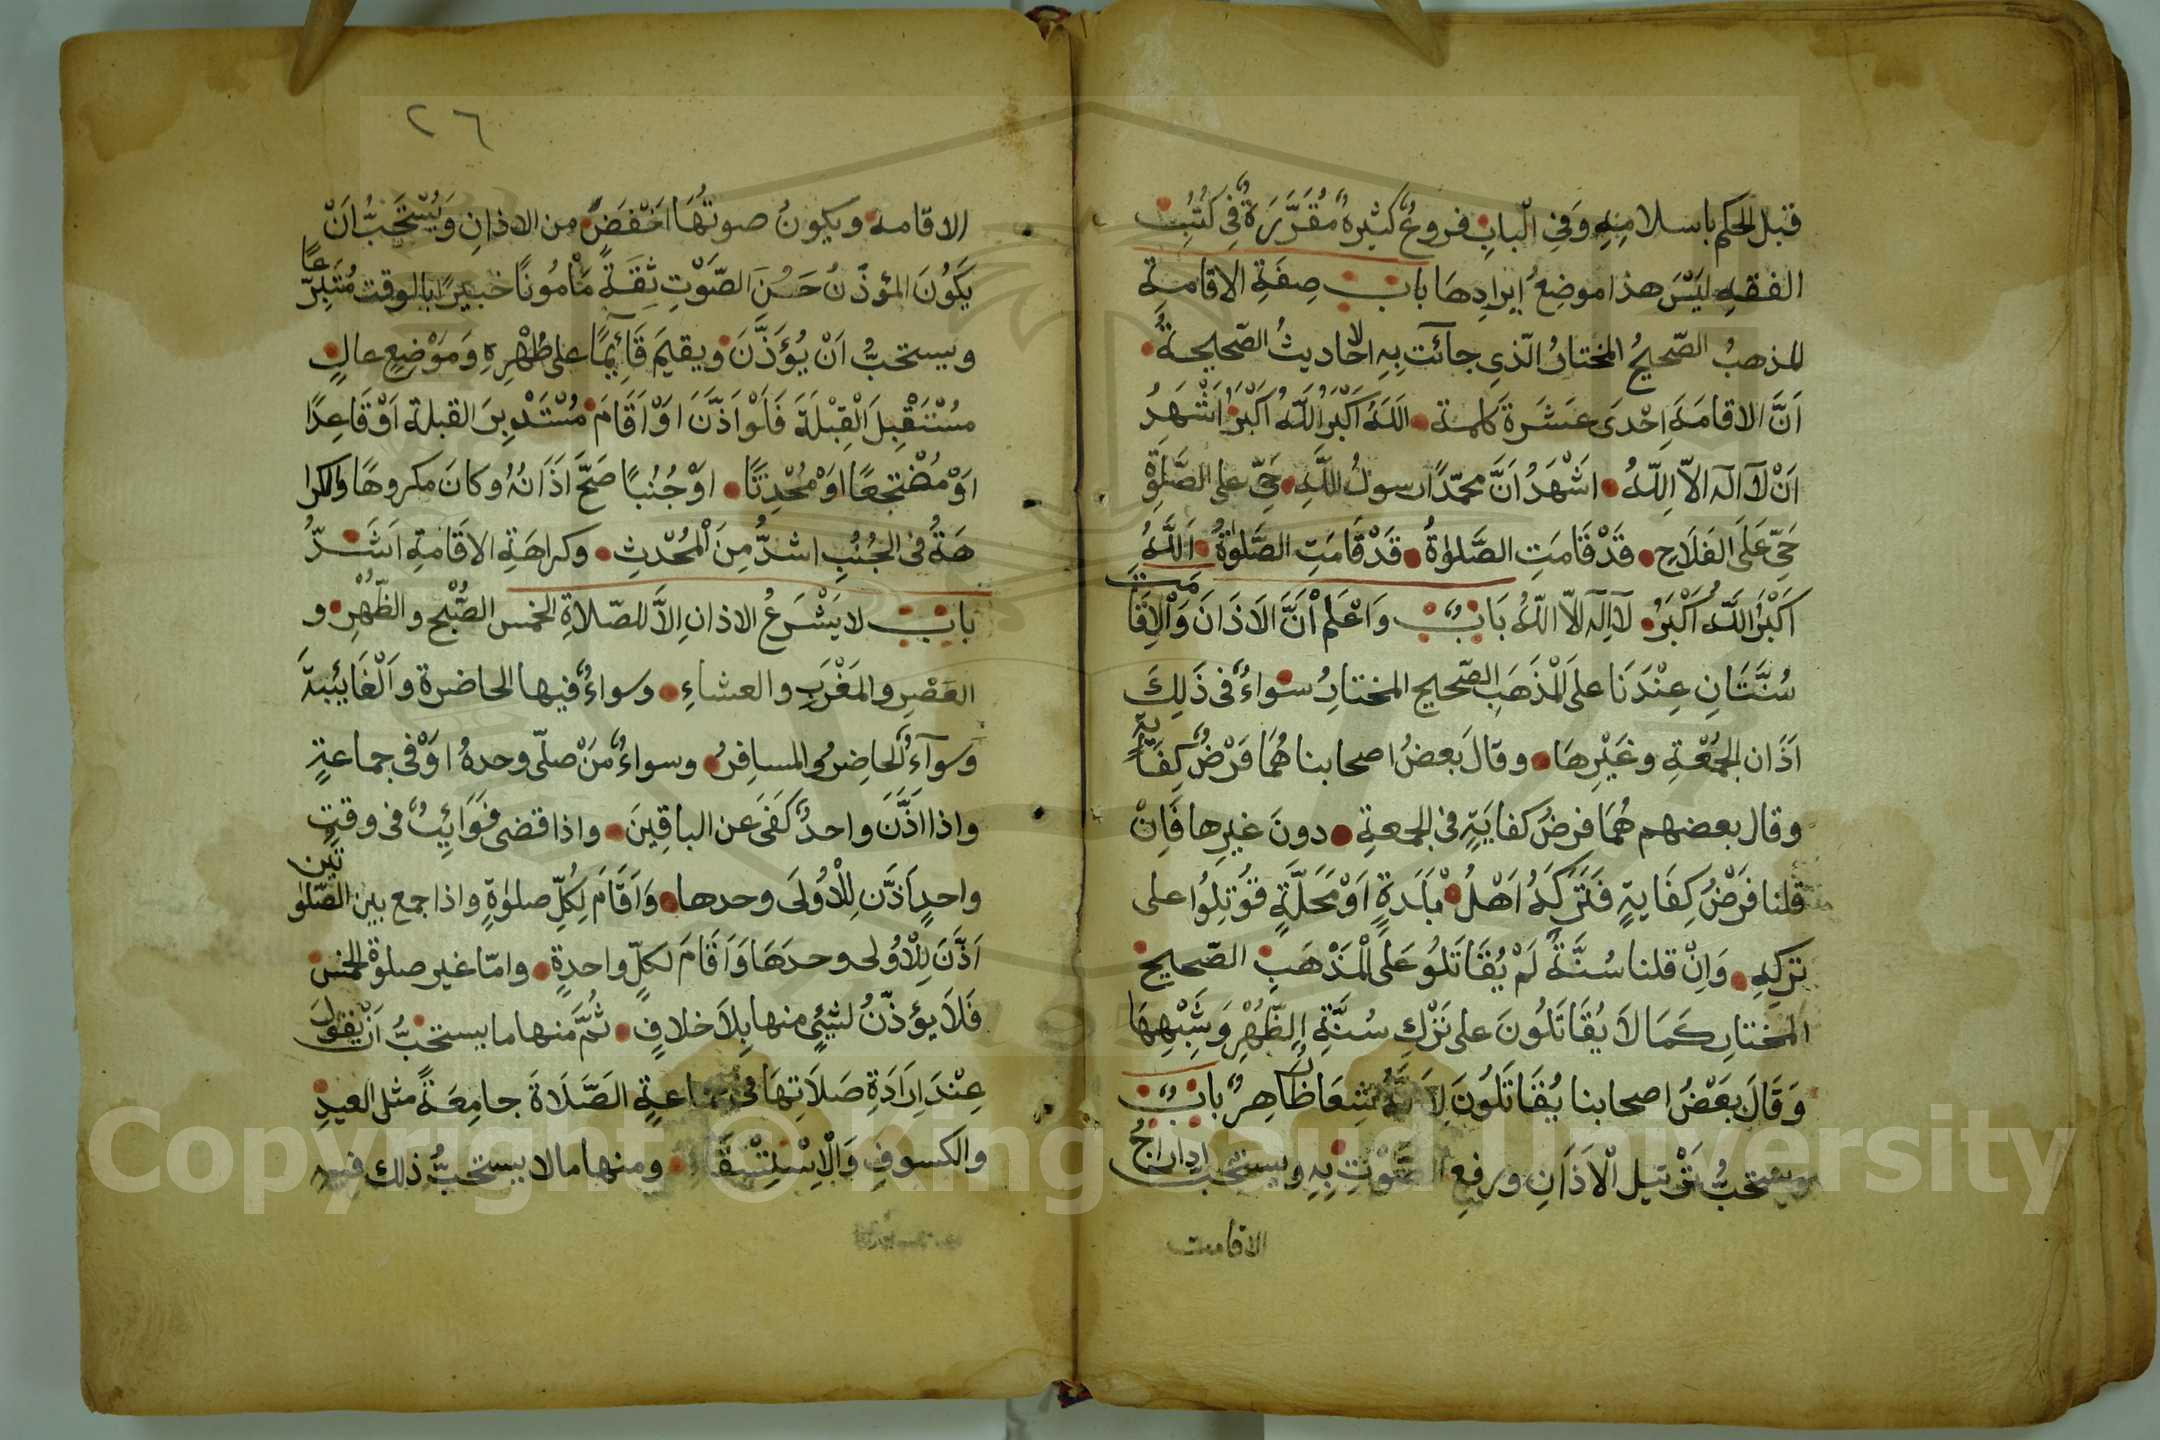 قبل الحكم باسلامِهِ وَفِي الْبابِ فروعٌ كثيرةٌ مُقَرَّرَةٌ فِي كُتُبِ
الفقهِ لَيْسَ هذا موضِعُ اِيْرادِهَا بابُ صِفَةِ الاقامةِ
المذهبُ الصّحيحُ المختارُ الّذِي جآئت بِهِ الاحاديثُ الصّحيحةُ
اَنَّ الاقامَةَ اِحْدَى عَشَرَةَ كلمة اَللّٰهُ اَكْبَرُ اَللّٰهُ اَكْبَرُ اَشْهَدُ
اَنْ لَآ اِلٰهَ اِلاّ اللّٰهُ اَشْهَدُ اَنَّ محمّدًا رسولُ اللّٰهِ حَيّ على الصَّلوٰةِ
حَيّ عَلَى الفَلَاحِ قَدْ قَامَتِ الصَّلوٰةُ قَدْ قَامَتِ الصَّلوٰةُ اَللّٰهُ
اَكْبَرُ اَللّٰهُ اَكْبَرُ لآ اِلٰهَ اِلاّ اللّٰهُ بَابٌ وَاعْلَمْ اَنَّ الاَذَانَ وَالْاِقَامَةَ
سُنَّتَانِ عِنْدَنَا علىَ الْمَذْهَبِ الصّحيح المختارِ سواءٌ فى ذٰلِكَ
اَذَان الجُمْعَةِ وغَيْرِهَا وقالَ بعضُ اصحابنا هُمَا فَرْضُ كِفَايةٍ
وقال بعضهم هُمَا فرضُ كفايَةٍ فى الجمعةِ دونَ غيرِها فَاِنْ
قلنا فَرْضُ كِفَايةٍ فَتَرَكَهُ اَهْلُ بَلَدَةٍ اَوْ مَحَلَّةٍ قُوتِلُوا على
تركِهِ وَاِنْ قلنا سُنَّةٌ لَمْ يُقَاتَلُوا عَلَى الْمَذْهَبِ الصّحيح
المختارِ كَمَا لَا يُقَاتَلُونَ على تَرْكِ سُنَّةِ الظُّهْرِ وَشِبْهِهَا
وَقَالَ بَعْضُ اصحابنا يُقَاتَلُونَ لِاَنَّهُ شِعَارٌ ظَاهِرٌ بابٌ
ويستحبُّ تَرْتيل الْاَذَانِ ورفع الصَّوْتِ بِهِ ويستحبُّ اِدراجُ
الاقامت
٢٦
الاقامة ويكونُ صوتُهَا اَخْفَضَ من الاذانِ وَيُسْتَحَبُّ اَنْ
يَكُونَ المُؤَذّنُ حَسَنَ الصّوْتِ ثِقَةً مَأْمُونًا خبيرًا بالوقت مُتَبَرِّعًا
ويستحبُّ اَنْ يُؤَذِّنَ ويقيمَ قَائِمًا على طُهْرِهِ وَمَوْضِعٍ عالٍ
مُسْتَقْبِلَ الْقِبْلَةَ فَلَوْ اَذَّنَ اوْ اَقَامَ مُسْتَدْبِرَ القبلةِ اَوْ قَاعِدًا
اَوْ مُضْتَجعًا اوَ مُحْدِثًا اوْ جُنُبًا صَحَّ اَذَانُهُ وكانَ مكروهًا والكرا
هَةُ فى الجُنُبِ اشدُّ مِنَ الْمُحْدِثِ وكراهَةِ الاقَامَةِ اَشَدُّ
بابٌ لا يَشْرَعُ الاذانِ اِلاَّ للصّلاةِ الخمسِ الصُّبْحِ والظُّهْرِ و
العَصْرِ والمَغْرَبِ والعشاءِ وسواءٌ فيها الحاضرة وَالْغَائِبةَ
وَسوآءٌ الحَاضِرُ والمسافِرُ وسواءٌ مَنْ صلّى وحدهُ اوْ فى جماعةٍ
واذا اَذَّنَ واحدٌ كَفَى عَن الباقِينَ واذا قضى فَوَائِتَ فى وقتٍ
واحدٍ اَذَّن لِلْاُولَى وحدها وَاَقَامَ لِكُلِّ صلوٰةٍ واذا جمع بين الصّلوٰتين
اَذَّنَ لِلْاُولى وحدَهَا وَاَقَامَ لكلّ واحدةٍ وامّا غير صلوٰة الخمس
فَلَا يؤذّنُ لشيْئٍ منها بِلَا خلافٍ ثُمَّ منها ما يستحبُّ اَنْ يقول
عِنْدَ اِرَادَةِ صَلَاتِهَا فى جماعةٍ الصَّلَاةَ جامِعَةً مثل العيدِ
والكسوفِ وَالْاِسْتِسْقَاءِ ومنها ما لا يستحبُّ ذلك فيه
Copyright © King Saud University